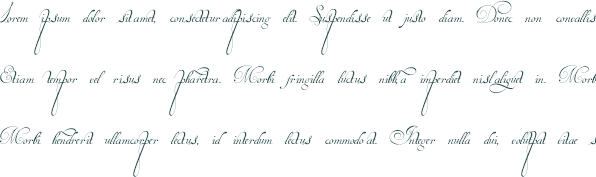 Lorem ipsum dolor sit amet, consectetur adipiscing elit. Suspendisse ut justo diam. Donec non convallis
Etiam tempor vel risus nec pharetra. Morbi fringilla luctus nibh, a imperdiet nisl aliquet in. Morb
Morbi hendrerit ullamcorper lectus, id interdum lectus commodo at. Integer nulla dui, volutpat vitae s